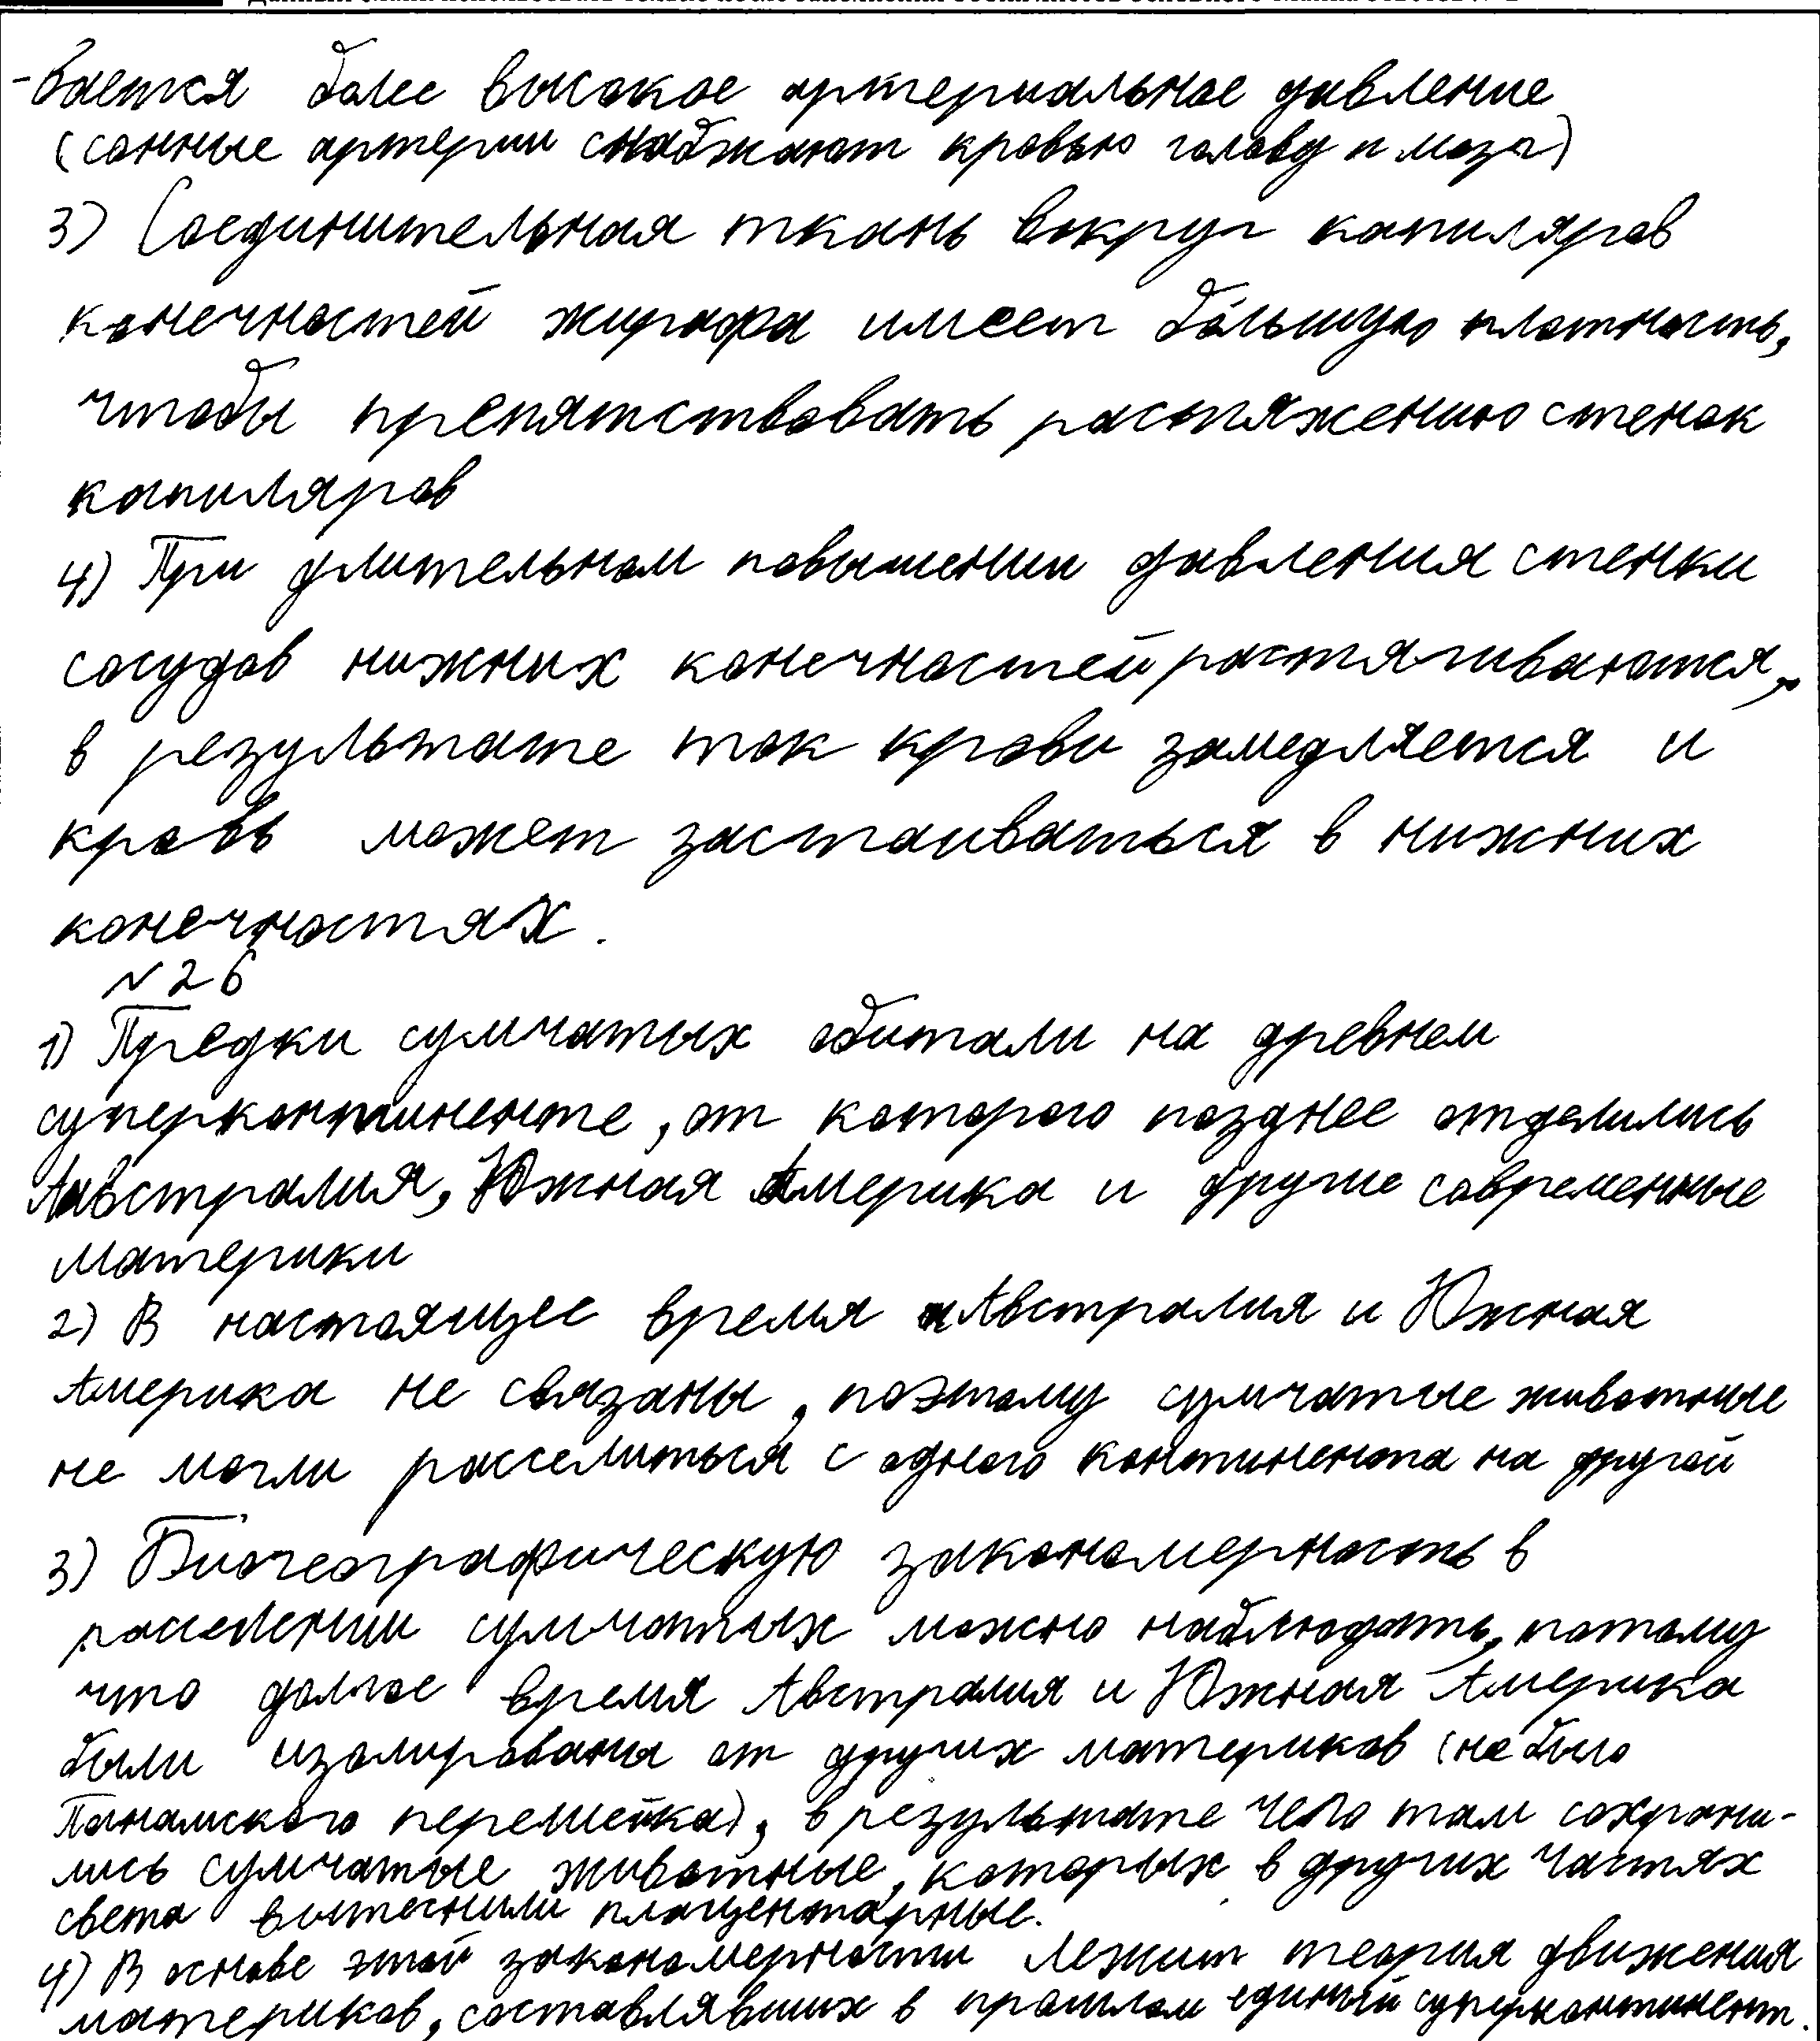 -вается более высокое артериальное давление
(сонные артерии снабжают кровью голову и мозг)
3) Соединительная ткань вокруг капиляров
конечностей жирафа имеет бо́льшую плотность,
чтобы препятствовать растяжению стенок
капиляров
4) При длительном повышении давления стенки
сосудов нижних конечностей растягиваются,
в результате ток крови замедляется и
кровь может застаиваться в нижних
конечностях.
№26
1) Предки сумчатых обитали на древнем
суперконтиненте, от которого позднее отделились
Австралия, Южная Америка и другие современные
материки
2) В настоящее время Австралия и Южная
Америка не связаны, поэтому сумчатые животные
не могли расселиться с одного континента на другой
3) Биогеографическую закономерность в
расселении сумчатых можно наблюдать, потому
что долгое время Австралия и Южная Америка
были изолированы от других материков (не было
Панамского перешейка), в результате чего там сохрани-
лись сумчатые животные, которых в других частях
света вытеснили плацентарные.
4) В основе этой закономерности лежит теория движения
материков, составлявших в прошлом единый суперконтинент.